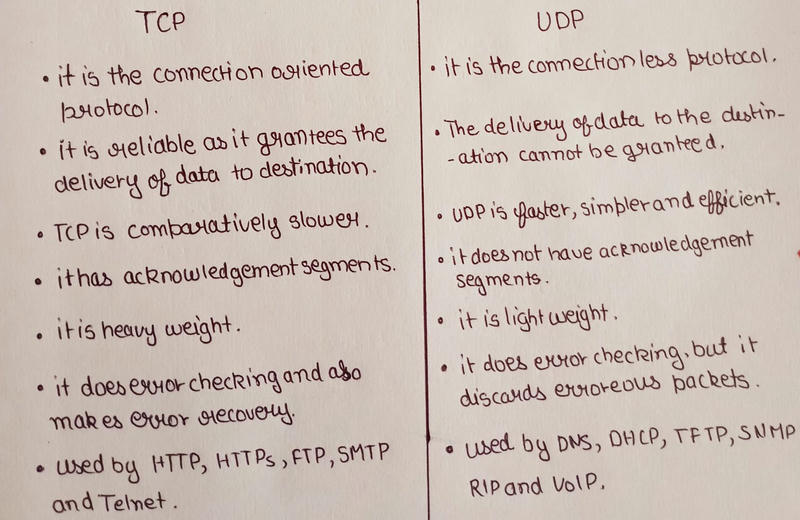 TCP
• it is the connection oriented
protocol.
• it is reliable as it grantees the
delivery of data to destination.
• TCP is comparatively slower.
• it has acknowledgement segments.
• it is heavy weight.
• it does error checking and also
makes error recovery.
• used by HTTP, HTTPs, FTP, SMTP
and Telnet.
UDP
• it is the connection less protocol.
• The delivery of data to the destin-
-ation cannot be granteed.
• UDP is faster, simpler and efficient.
• it does not have acknowledgement
segments.
• it is light weight.
• it does error checking, but it
discards erroreous packets.
• used by DNS, DHCP, TFTP, SNMP
RIP and VoIP.